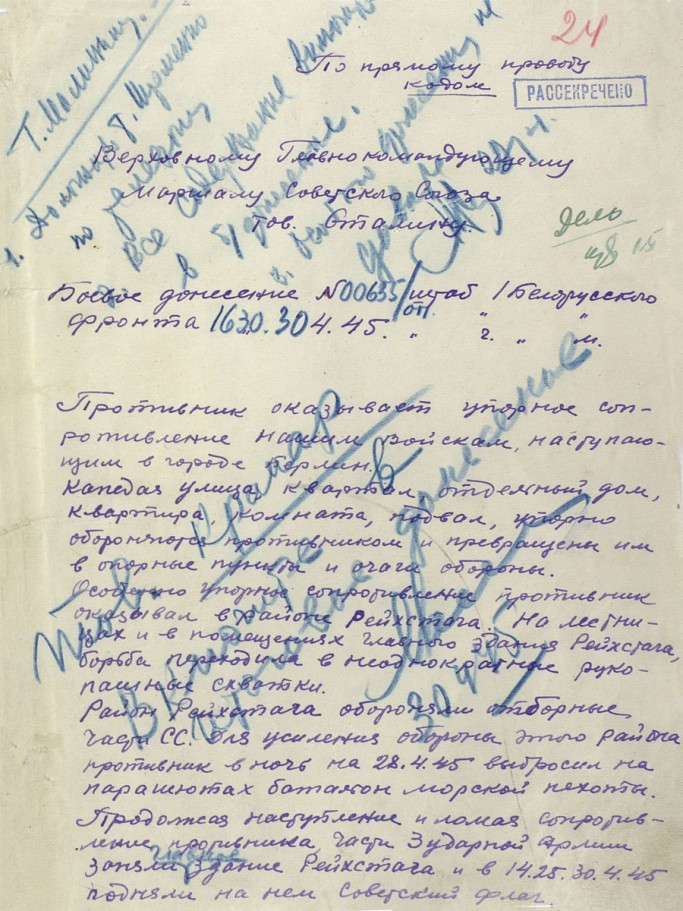 24
По прямому проводу
кодом
РАССЕКРЕЧЕНО
Верховному Главнокомандующему
Маршалу Советского Союза
тов. Сталину.
дело
Боевое донесение N00635/оп штаб 1 Белорусского
фронта 1630.30 4.45. " ч. " м.
Противник оказывает упорное соп-
ротивление нашим войскам, наступаю-
щим в городе Берлин.
Каждая улица, квартал, отдельный дом,
квартира, комната, подвал, упорно
обороняются противником и превращены им
в опорные пункты и очаги обороны.
Особенно упорное сопротивление противник
оказывал в районе Рейхстага. На лестни-
цах и в помещениях главного здания Рейхстага,
борьба переходила в неоднократные руко-
пашные схватки.
Район Рейхстага обороняли отборные
части СС. Для усиления обороны этого района
противник в ночь на 28.4.45 выбросил на
парашютах батальон морской пехоты.
Продолжая наступление и ломая сопротив-
ление противника, части 3 ударной Армии
заняли главное здание Рейхстага и в 14.25.30.4.45
подняли на нем Советский флаг.